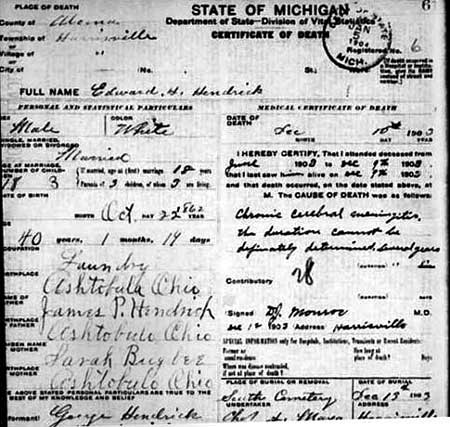 PLACE OF DEATH
STATE OF MICHIGAN
6
County of
Department of State—Division of Vital Statistics
Township of Harrisville
CERTIFICATE OF DEATH
Village of
Registered No. 6
City of No. St.;
MICH.
FULL NAME Edward H. Hendrick
PERSONAL AND STATISTICAL PARTICULARS
MEDICAL CERTIFICATE OF DEATH
COLOR
DATE OF DEATH
Male White
Dec 10th 1903
SINGLE, MARRIED, WIDOWED OR DIVORCED
MONTH DAY YEAR
Married
I HEREBY CERTIFY, That I attended deceased from
1903 to Dec 9th 1903
AGE AT MARRIAGE, NUMBER OF CHILDREN
(If married, age at (first) marriage 18 years
that I last saw him alive on Dec 9th 1903
18 3
Parents of 3 children, of whom 3 are living.)
and that death occurred, on the date stated above, at
DATE OF BIRTH
M. The CAUSE OF DEATH was as follows:
Oct 22 1862
Chronic cerebral meningitis,
MONTH DAY YEAR
the duration cannot be
40 years, 1 months, 19 days
definately determined, several years
OCCUPATION
Laundry
Contributory 28
BIRTHPLACE
Ashtobula Ohio
NAME OF FATHER
James P. Hendrick
Signed Monroe M.D.
BIRTHPLACE FATHER
Ashtobulo Ohio
1903 Address Harrisville
MAIDEN NAME MOTHER
Sarah Bugbee
SPECIAL INFORMATION only for Hospitals, Institutions, Transients or Recent Residents:
Former or usual residence
How long at place of death? Days
BIRTHPLACE MOTHER
Ashtobulo Ohio
Where was disease contracted, if not at place of death?
THE ABOVE STATED PERSONAL PARTICULARS ARE TRUE TO THE BEST OF MY KNOWLEDGE AND BELIEF
PLACE OF BURIAL OR REMOVAL
DATE OF BURIAL
South Cemetery Dec 13 1903
UNDERTAKER
ADDRESS
Informant George Hendrick